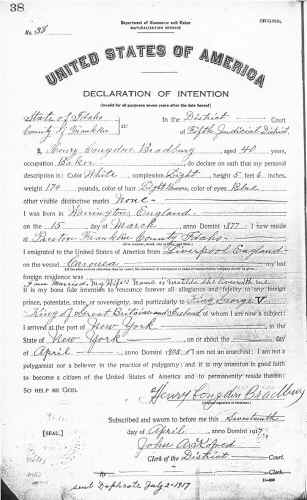 38
Department of Commerce and Labor
ORIGINAL
NATURALIZATION SERVICE
No. 38
UNITED STATES OF AMERICA
DECLARATION OF INTENTION
(Invalid for all purposes seven years after the date hereof)
State of Idaho
In the District Court
County of Franklin ss:
of Fifth Judicial District
I, Henry Longdon Bradbury, aged 40 years,
occupation Baker, do declare on oath that my personal
description is: Color White, complexion Light, height 5 feet 6 inches,
weight 170 pounds, color of hair Light Brown, color of eyes Blue
other visible distinctive marks None
I was born in Warrington England
on the 15 day of March, anno Domini 1877; I now reside
at Preston Franklin County Idaho
I emigrated to the United States of America from Liverpool England
on the vessel; my last
foreign residence was
I am Married, My Wife's Name is Matilda
It is my bona fide intention to renounce forever all allegiance and fidelity to any foreign
prince, potentate, state, or sovereignty, and particularly to King George V
King of Great Britain and Ireland, of whom I am now a subject; I
arrived at the port of New York, in the
State of New York, on or about the day
of April, anno Domini; I am not an anarchist; I am not a
polygamist nor a believer in the practice of polygamy; and it is my intention in good faith
to become a citizen of the United States of America and to permanently reside therein:
SO HELP ME GOD.
Henry Longdon Bradbury
Subscribed and sworn to before me this Seventeenth
[SEAL.]
day of April, anno Domini 1917
John A.
Clerk of the District Court.
sent duplicate July 2-1917